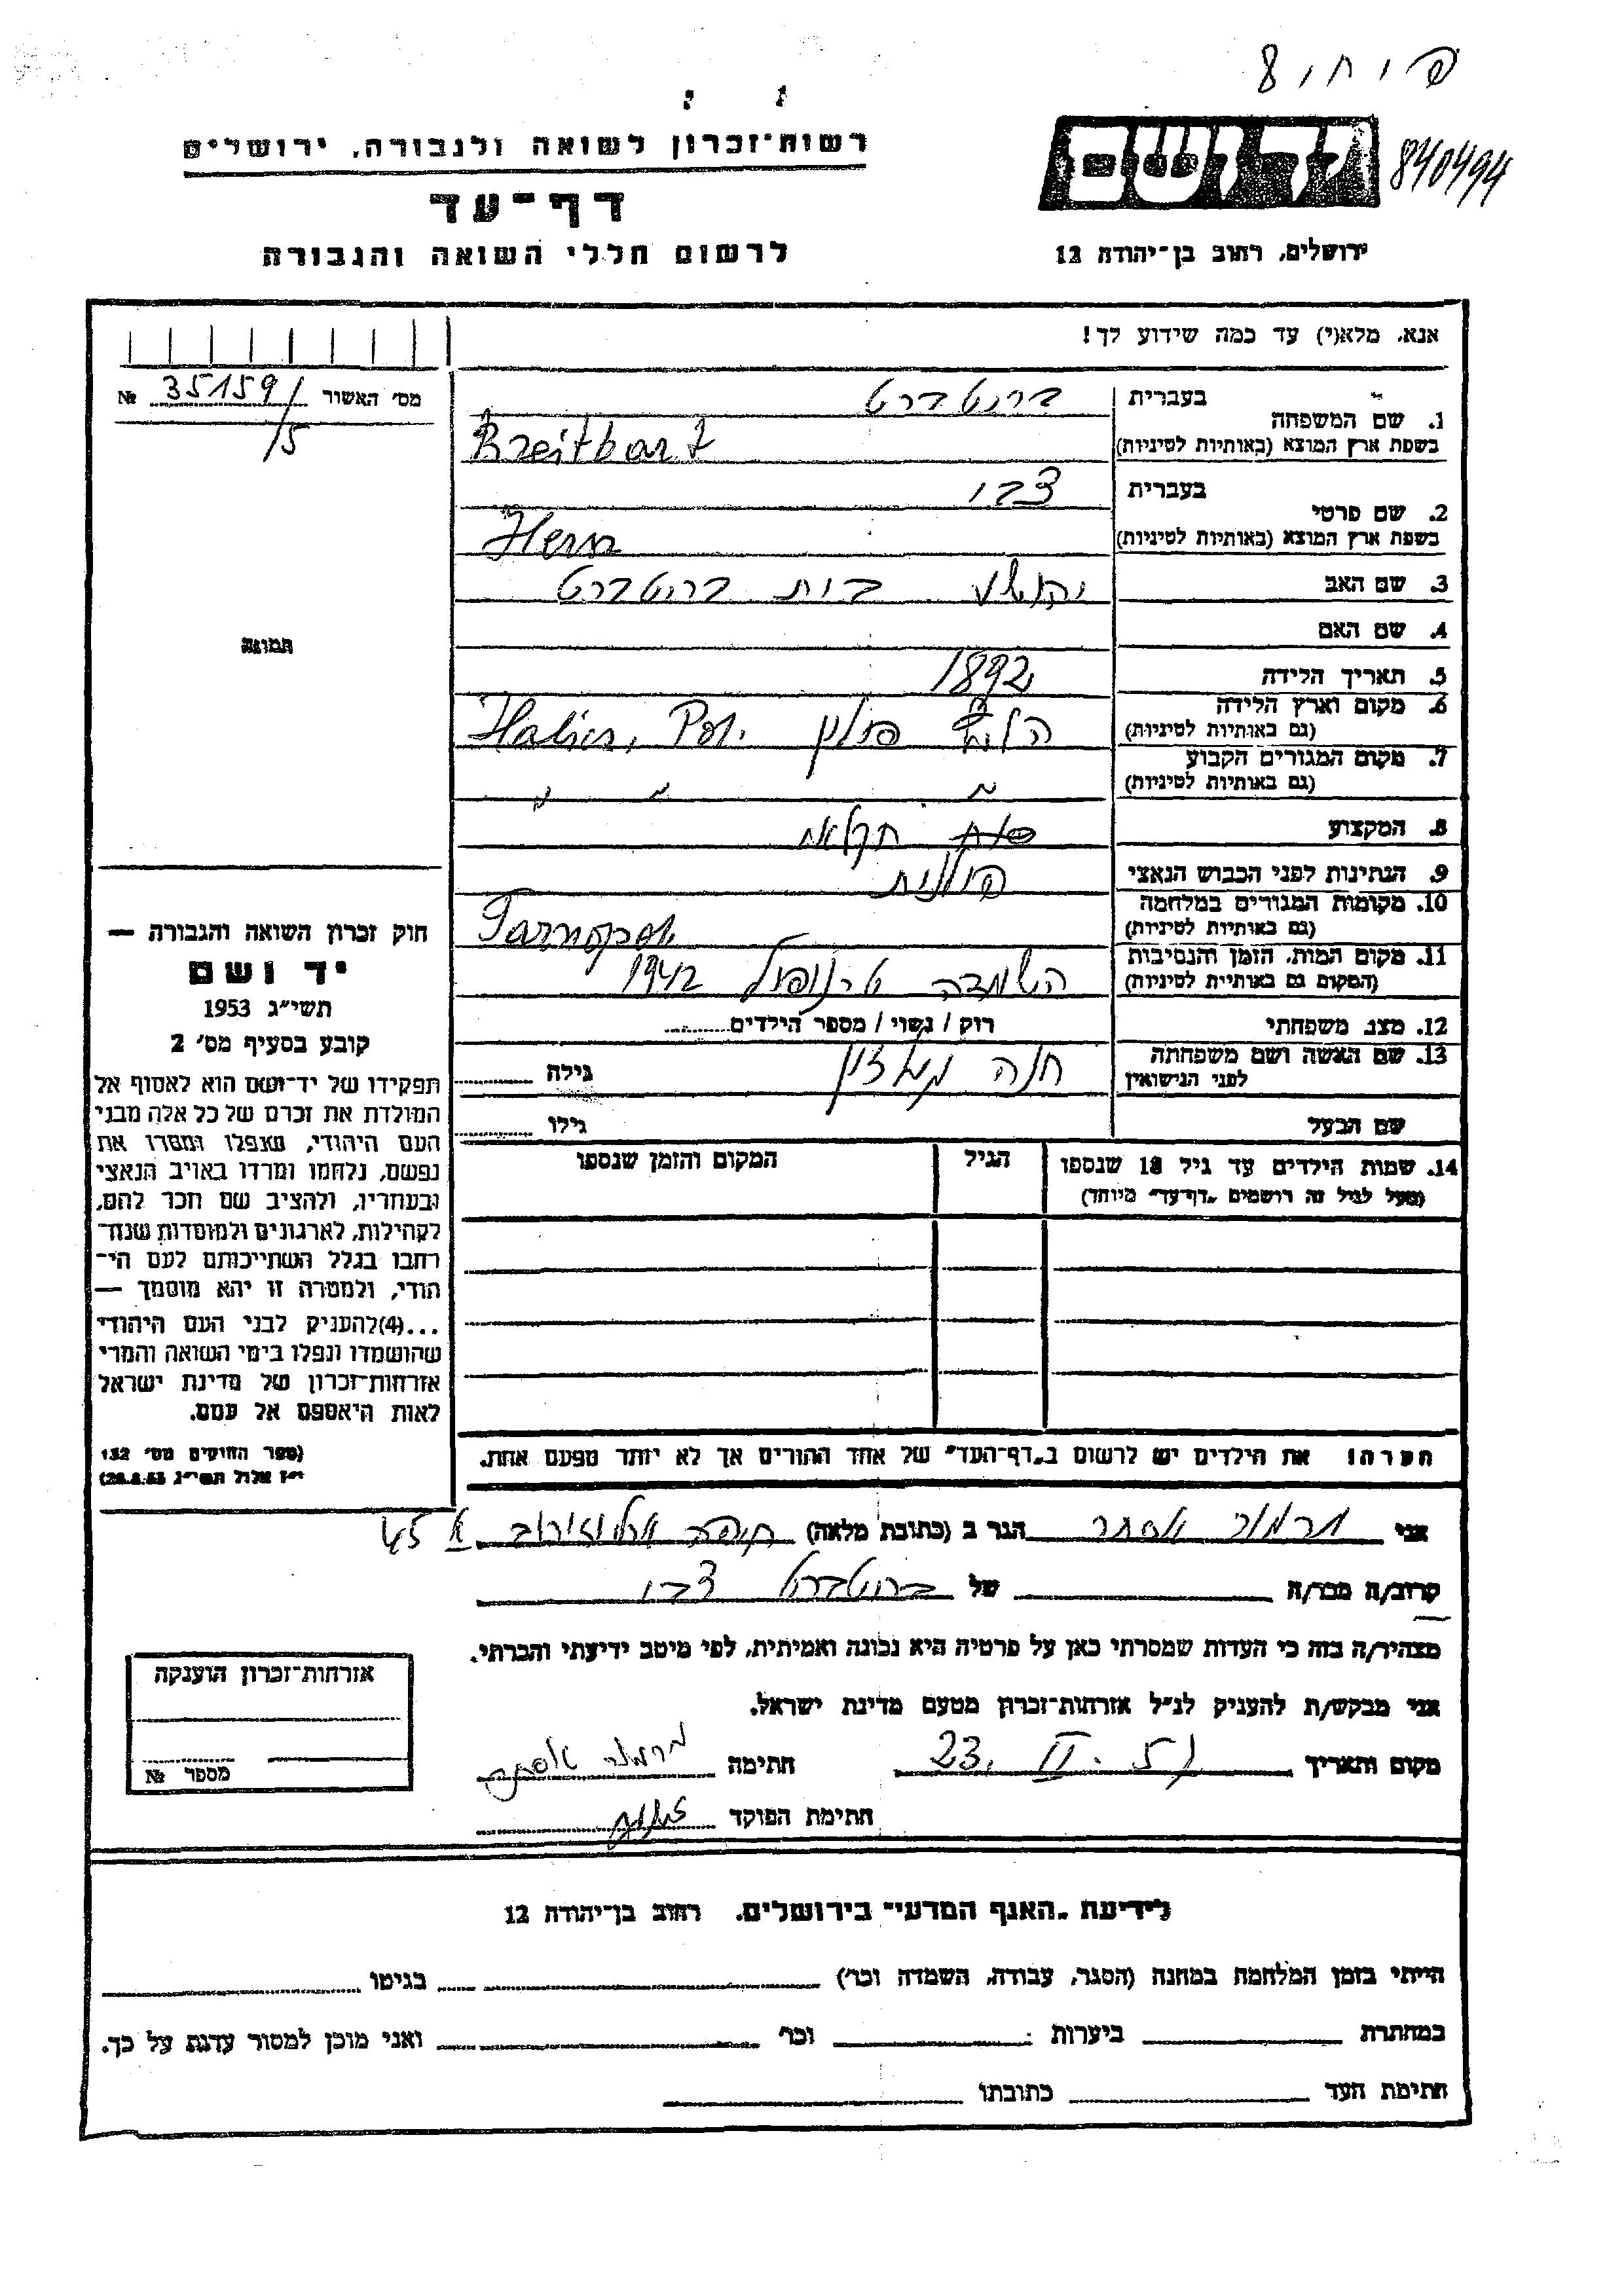 רשות־זכרון לשואה ולגבורה, ירושלים
דף־עד
לרשום חללי השואה והגבורה
יד ושם
840494
ירושלים, רחוב בן־יהודה 12
אנא, מלא(י) עד כמה שידוע לך!
מס' האשור 35159/5 №
תמונה
1. שם המשפחה
בעברית ברייטברט
בשפת ארץ המוצא (באותיות לטיניות) Breitbart
2. שם פרטי
בעברית צבי
בשפת ארץ המוצא (באותיות לטיניות) Hersz
3. שם האב יהושע ברייטברט
4. שם האם
5. תאריך הלידה 1892
6. מקום וארץ הלידה
(גם באותיות לטיניות) פולין Halicz, Pol.
7. מקום המגורים הקבוע
(גם באותיות לטיניות) " " "
8. המקצוע חקלאי
9. הנתינות לפני הכבוש הנאצי פולנית
10. מקומות המגורים במלחמה
(גם באותיות לטיניות) Tarnopol
11. מקום המות, הזמן והנסיבות
(המקום גם באותיית לטיניות) השמדה טרנופול 1942
12. מצב משפחתי רוק / נשוי / מספר הילדים
13. שם האשה ושם משפחתה
לפני הנישואין חנה גילה
שם הבעל גילו
14. שמות הילדים עד גיל 18 שנספו הגיל המקום והזמן שנספו
(מעל לגיל זה רושמים „דף־עד" מיוחד)
הערה! את הילדים יש לרשום ב„דף־העד" של אחד ההורים אך לא יותר מפעם אחת.
חוק זכרון השואה והגבורה —
יד ושם
תשי״ג 1953
קובע בסעיף מס' 2
תפקידו של יד־ושם הוא לאסוף אל
המולדת את זכרם של כל אלה מבני
העם היהודי, שנפלו ומסרו את
נפשם, נלחמו ומרדו באויב הנאצי
ובעוזריו, ולהציב שם וזכר להם,
לקהילות, לארגונים ולמוסדות שנח־
רבו בגלל השתייכותם לעם הי־
הודי, ולמטרה זו יהא מוסמך —
...(4) להעניק לבני העם היהודי
שהושמדו ונפלו בימי השואה והמרי
אזרחות־זכרון של מדינת ישראל
לאות היאספם אל עמם.
(ספר החוקים מס' 132
י״ז אלול תשי״ג 28.8.53)
אני אסתר הגר ב (כתובת מלאה) חיפה ארלוזורוב 45 א
קרוב/ה מכר/ה של ברייטברט צבי
מצהיר/ה בזה כי העדות שמסרתי כאן על פרטיה היא נכונה ואמיתית, לפי מיטב ידיעתי והכרתי.
אני מבקש/ת להעניק לנ״ל אזרחות־זכרון מטעם מדינת ישראל.
מקום ותאריך 23. II. 57 חתימה אסתר
חתימת הפוקד
אזרחות־זכרון הוענקה
מספר №
לידיעת „האגף המדעי" בירושלים, רחוב בן־יהודה 12
הייתי בזמן המלחמה במחנה (הסגר, עבודה, השמדה וכר') בגיטו
במחתרת ביערות וכר' ואני מוכן למסור עדות על כך.
חתימת העד כתובתו